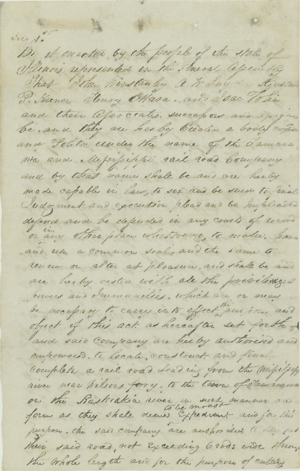 Sec. 1st
Be it enacted by the people of the state of
Illinois represented in the General Assembly
That John
and their Associates, successors and assigns
be, and they are hereby created a body corporate
and Politic under the name of the
and Mississippi rail road Company
and by that name shall be and are hereby
made capable in law, to sue and be sued to final
Judgment and execution plead and be impleaded
defend and be defended in any courts of record
or in any other place whatsoever, to make, have
and use a common seal, and the same to
renew or alter at pleasure, and shall be and
are hereby vested with all the privileges
powers and immunities, which are or may
be necessary to carry into effect the purposes and
object of this act as hereafter set forth
and said company are hereby authorised and
empowered to locate, construct and finally
complete a rail road leading from the Mississippi
river near Wilsons ferry, to the town of
on the Kaskaskia river in such manner and
form as they shall deem the most expedient and for this
purpose, the said company are authorised to lay out
their said road, not exceeding 6 rods wide through
the whole length and for the purpose of cutting